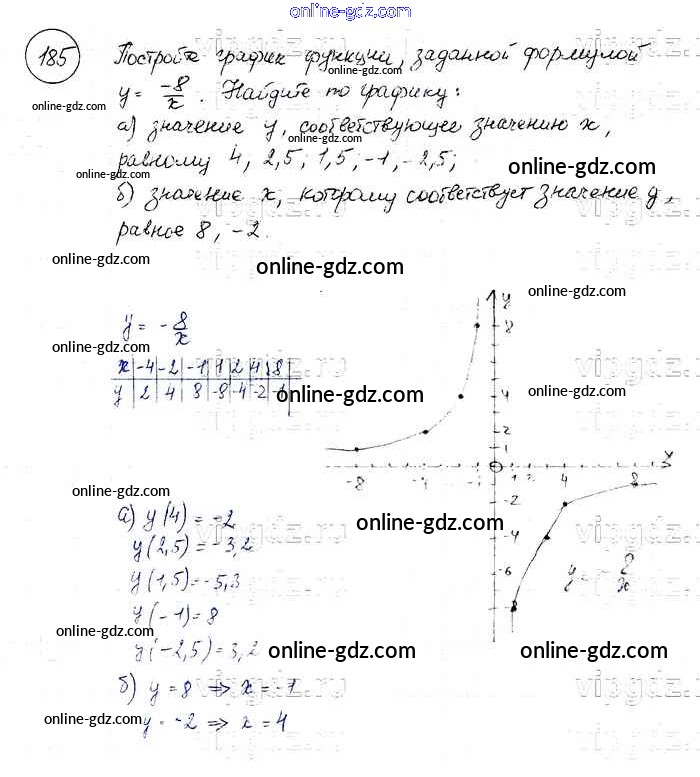 online-gdz.com
185 Постройте график функции, заданной формулой
online-gdz.com
y = -8/x. Найдите по графику:
online-gdz.com online-gdz.com
а) значение y, соответствующее значению x,
online-gdz.com
равному 4, 2,5; 1,5; -1, -2,5;
online-gdz.com online-gdz.com
б) значение x, которому соответствует значение y,
vipgdz.ru
равное 8, -2.
online-gdz.com
online-gdz.com
online-gdz.com
y = -8/x
online-gdz.com
x -4 -2 -1 1 2 4 8
y 2 4 8 -8 -4 -2 -1
online-gdz.com
online-gdz.com
y
8
4
2
1
x
-8 -4 -1 0 1 4 8
-2
-4
-6
y = -8/x
online-gdz.com
а) y(4) = -2
online-gdz.com
y(2,5) = -3,2
y(1,5) = -5,3
y(-1) = 8
online-gdz.com
y(-2,5) = 3,2
online-gdz.com online-gdz.com
б) y = 8 ⇒ x = -1
vipgdz.ru
online-gdz.com
y = -2 ⇒ x = 4